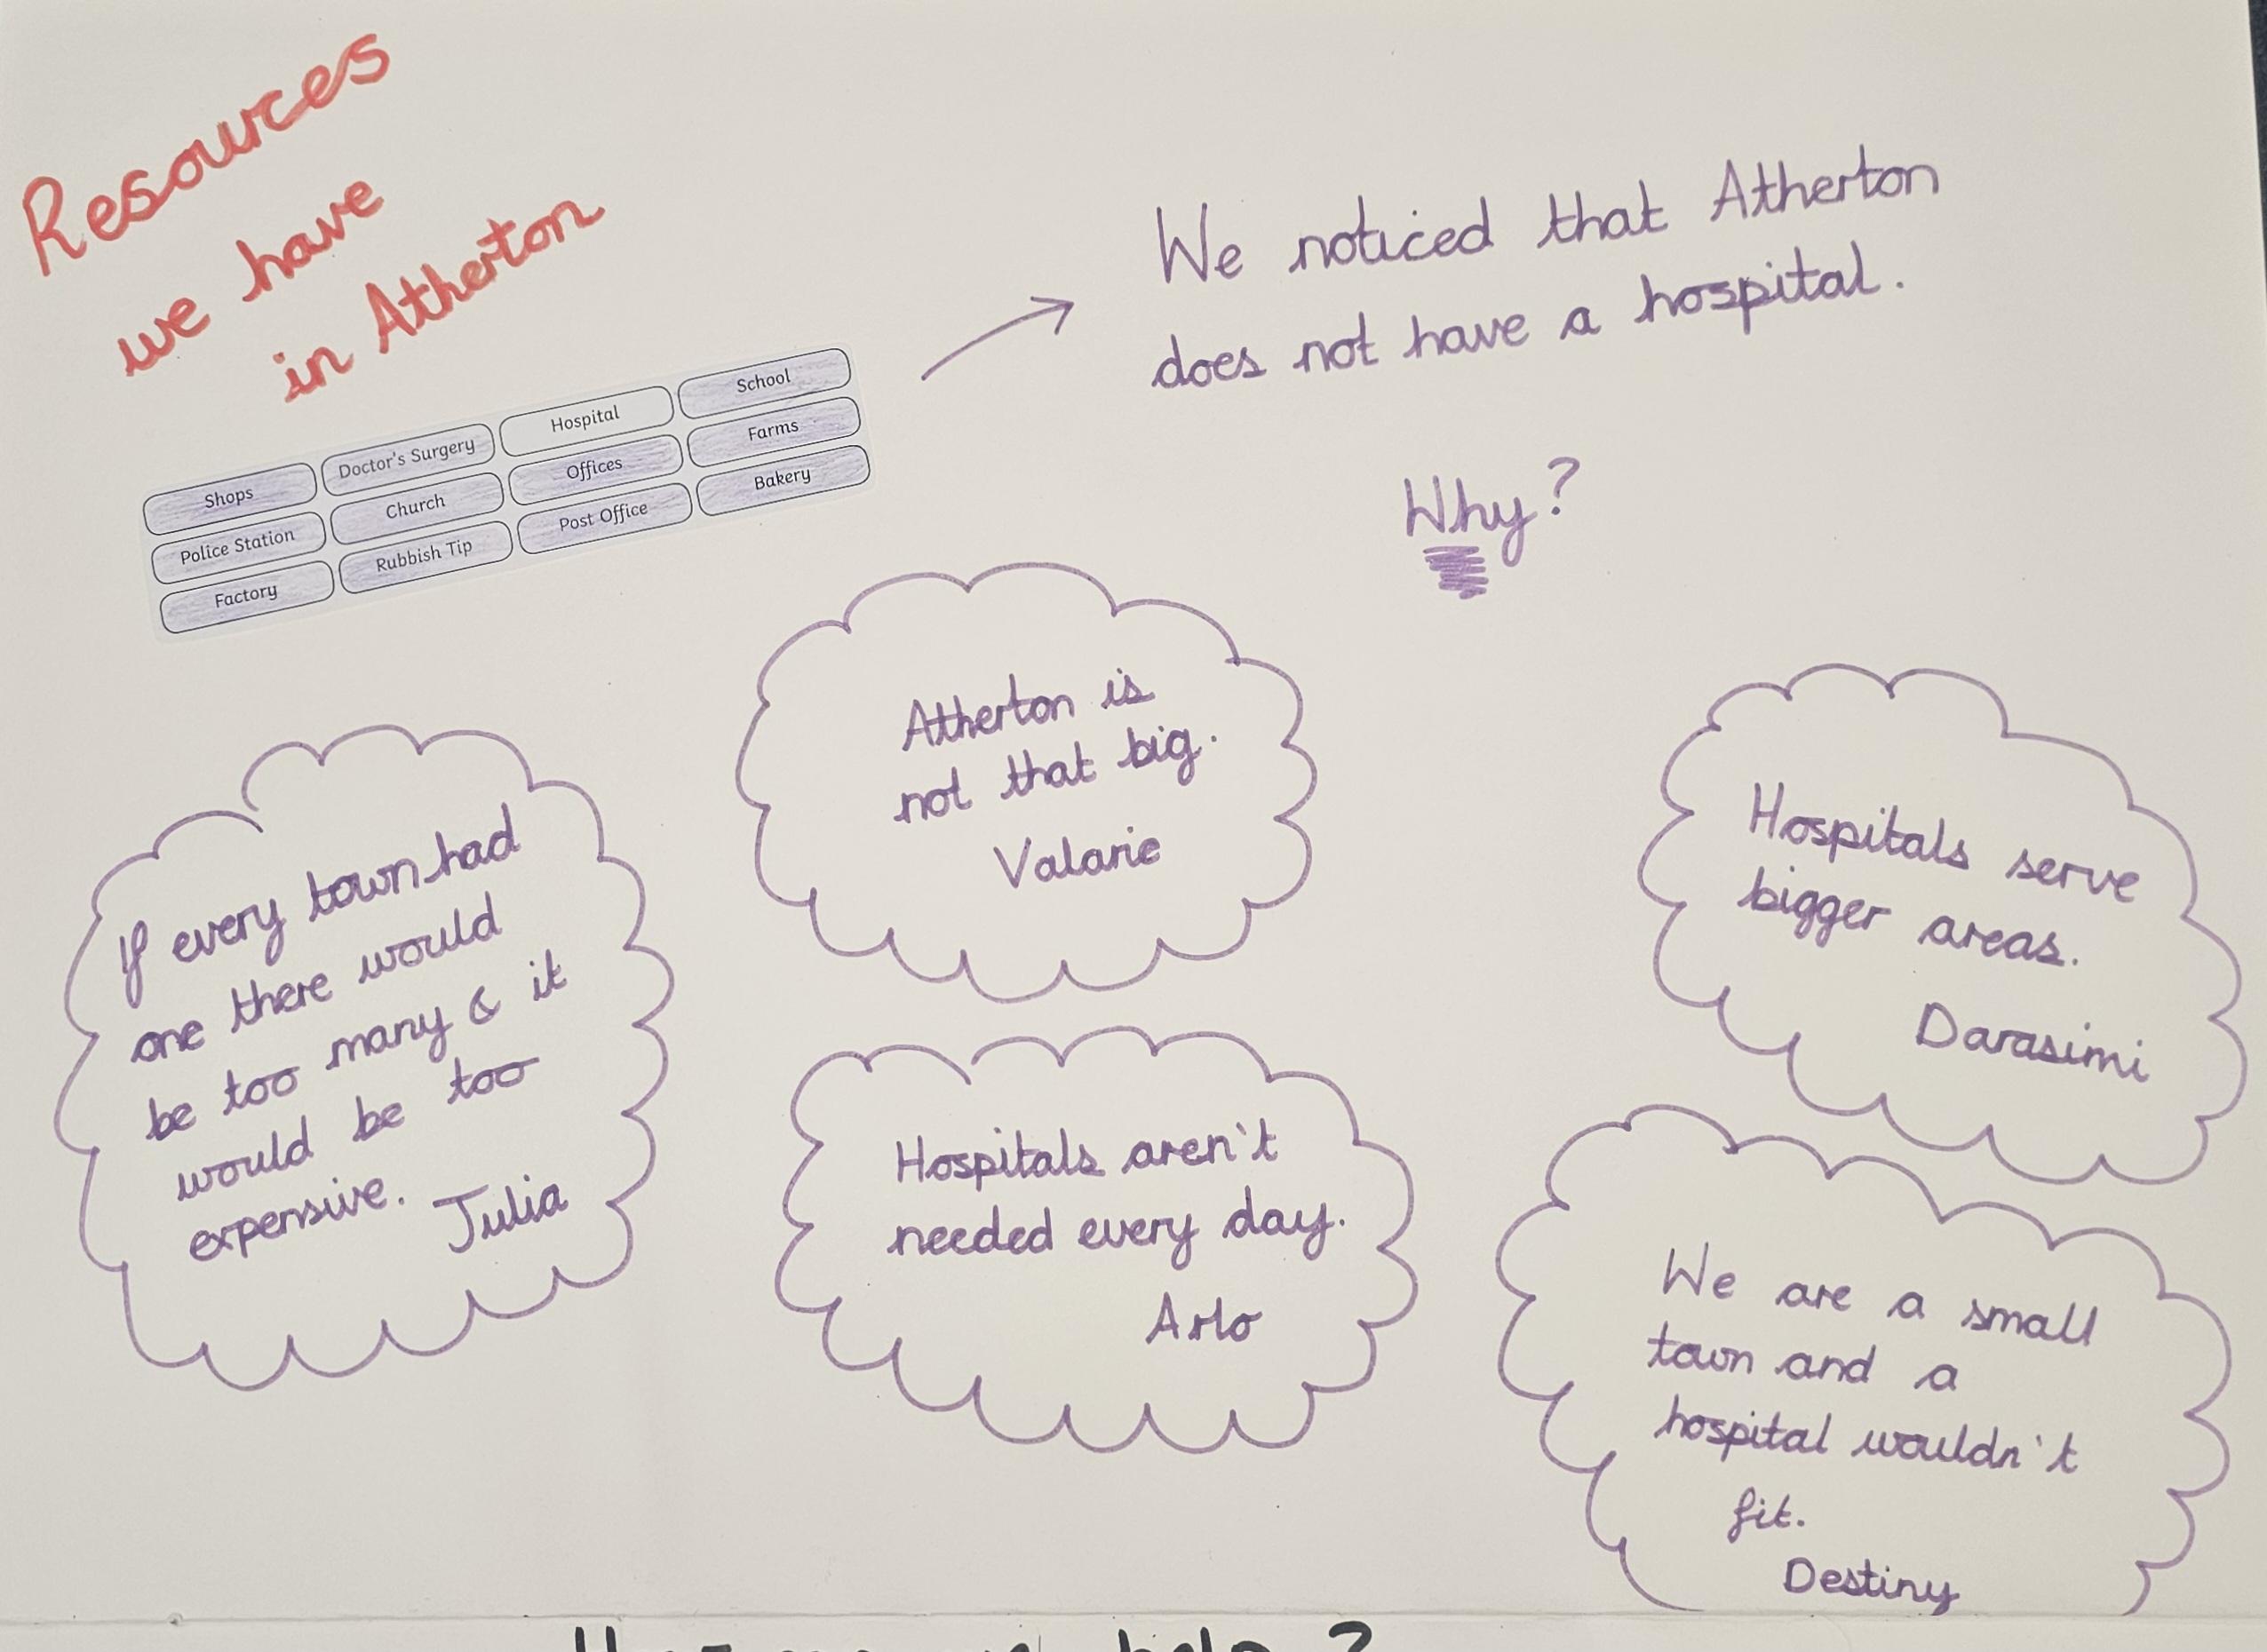 Resources
we have
in Atherton
Shops
Doctor's Surgery
Hospital
School
Police Station
Church
Offices
Farms
Factory
Rubbish Tip
Post Office
Bakery
We noticed that Atherton
does not have a hospital.
Why?
If every town had
one there would
be too many & it
would be too
expensive.
Julia
Atherton is
not that big.
Valarie
Hospitals aren't
needed every day.
Arlo
Hospitals serve
bigger areas.
Darasimi
We are a small
town and a
hospital wouldn't
fit.
Destiny
help?